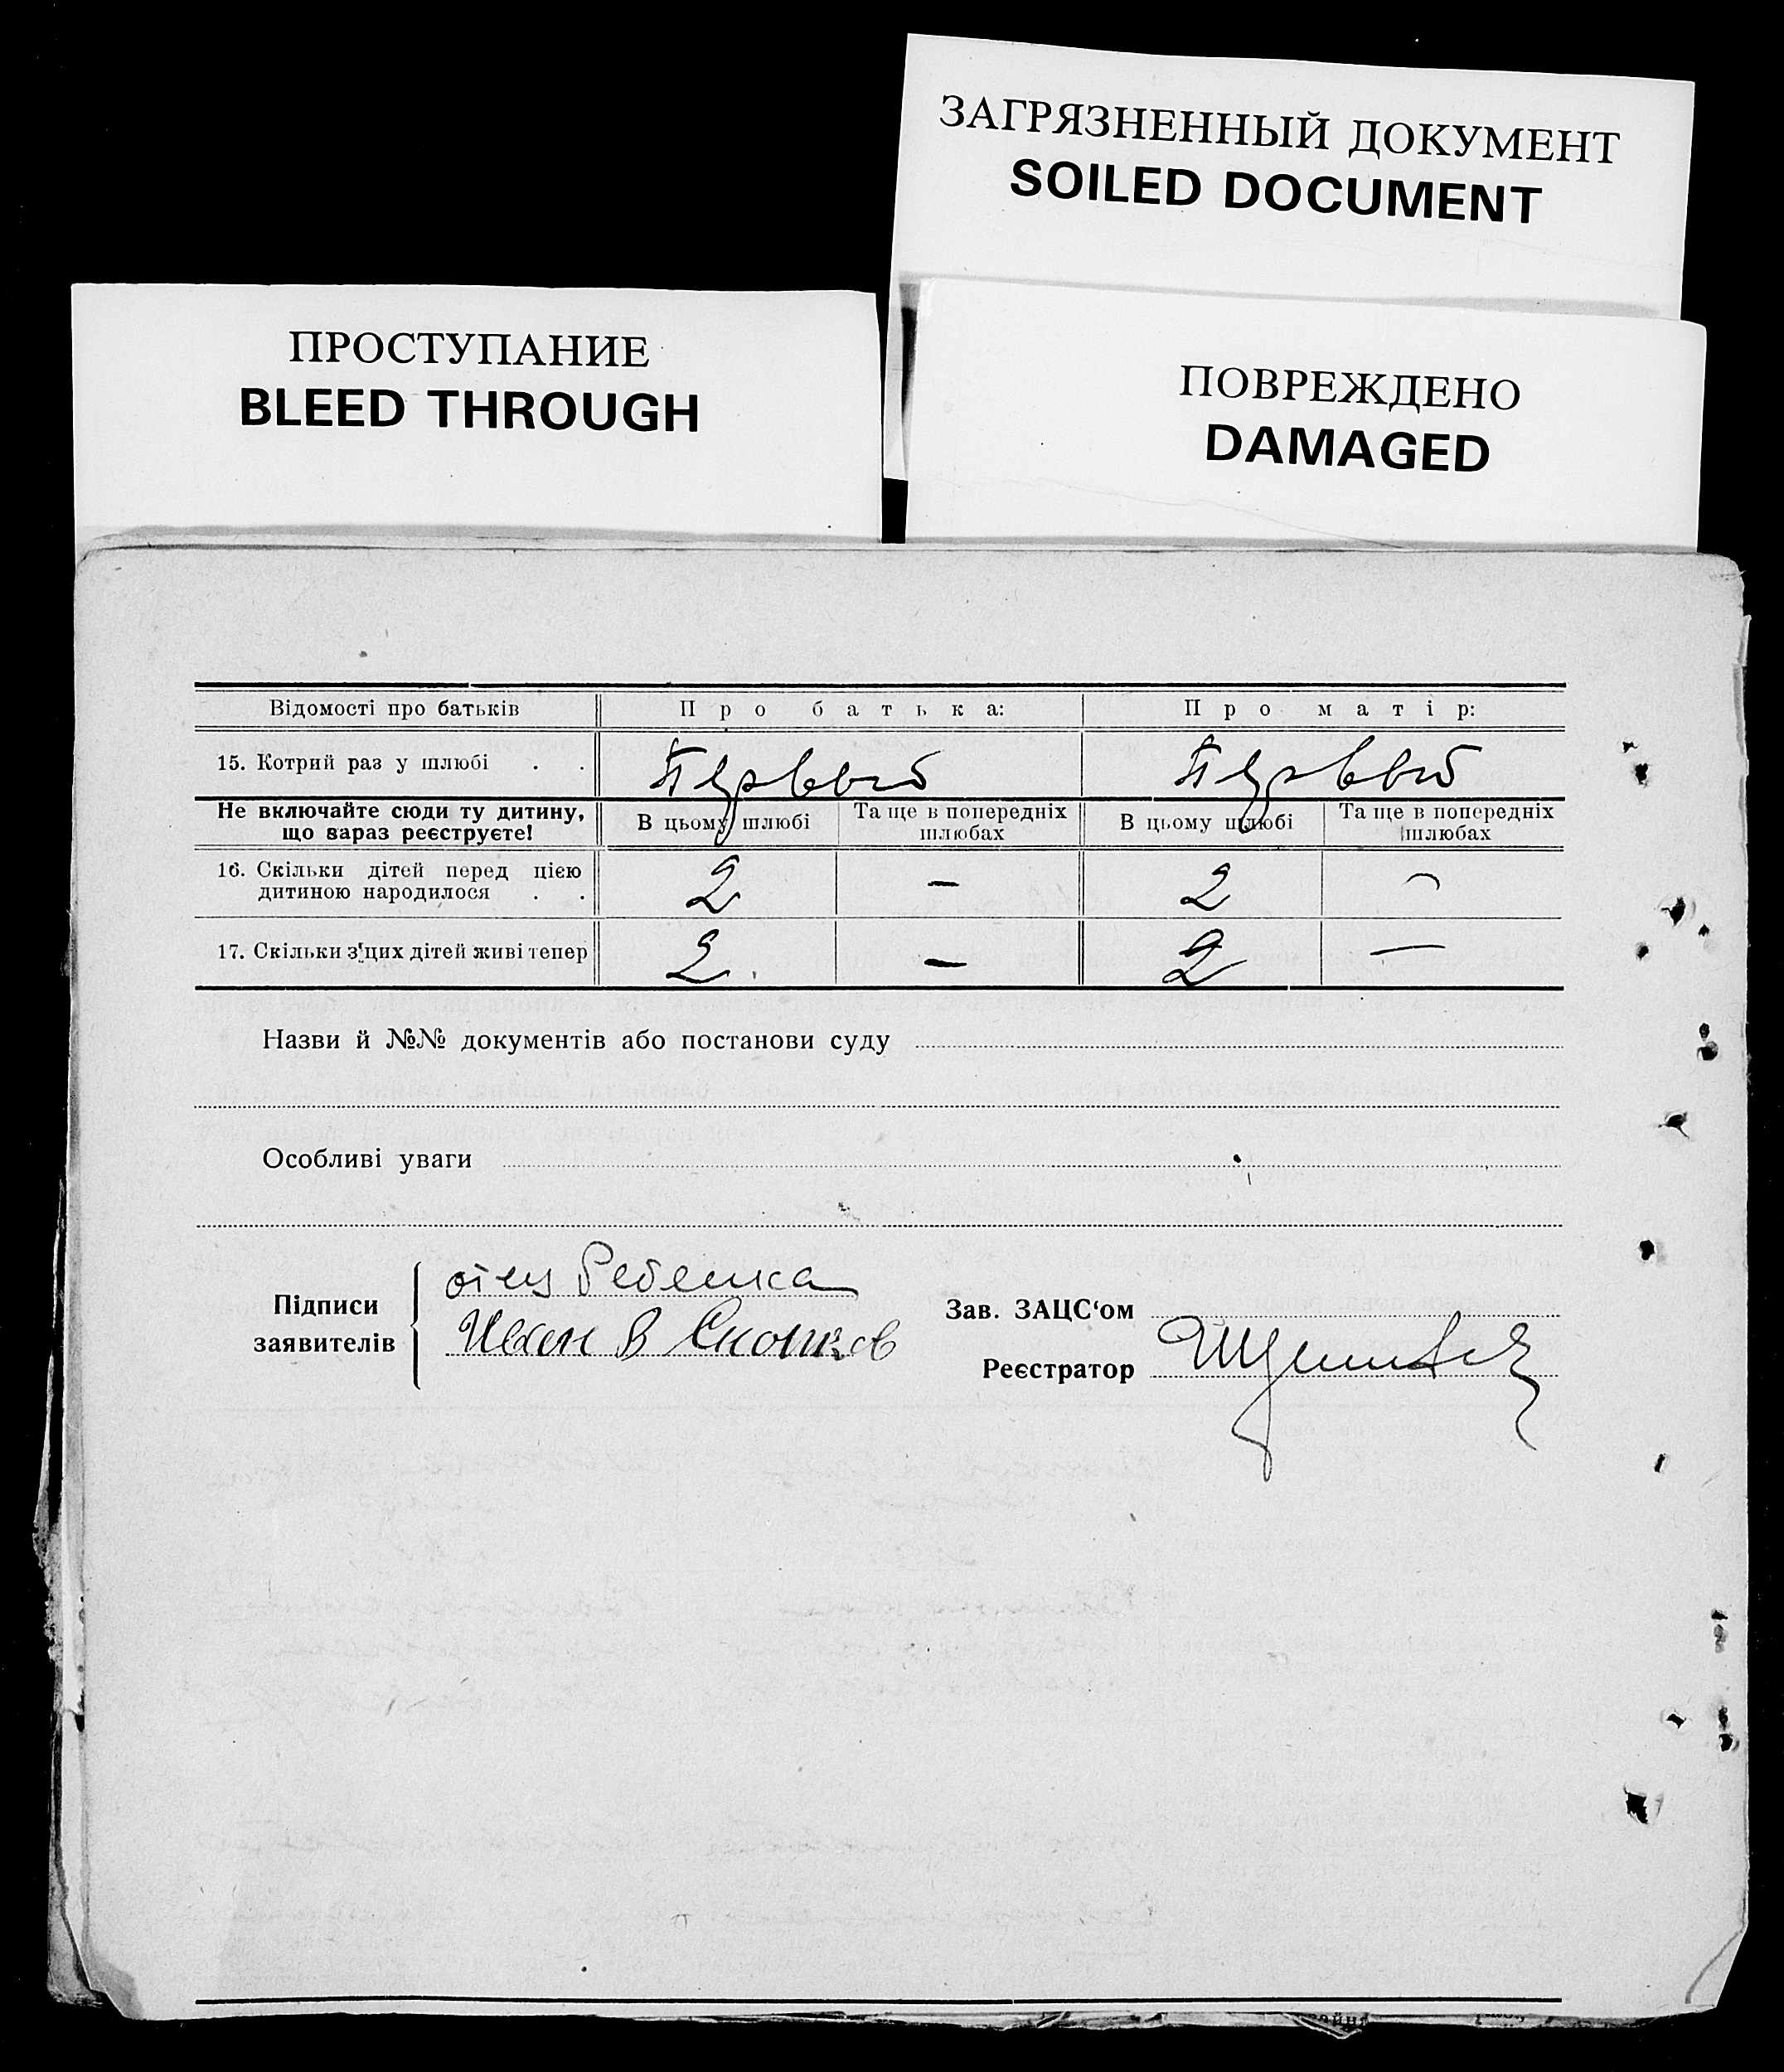 ЗАГРЯЗНЕННЫЙ ДОКУМЕНТ
SOILED DOCUMENT
ПРОСТУПАНИЕ
BLEED THROUGH
ПОВРЕЖДЕНО
DAMAGED
Відомості про батьків Про батька: Про матір:
15. Котрий раз у шлюбі . . Первый Первый
Не включайте сюди ту дитину, що вараз реєструєте! В цьому шлюбі Та ще в попередніх шлюбах В цьому шлюбі Та ще в попередніх шлюбах
16. Скільки дітей перед цією дитиною народилося . . 2 — 2 —
17. Скільки з'цих дітей живі тепер 2. — 2 —
Назви й №№ документів або постанови суду
Особливі уваги
Підписи заявителів
отец Ребенка
Иван В
Зав. ЗАЦС‘ом
Реєстратор